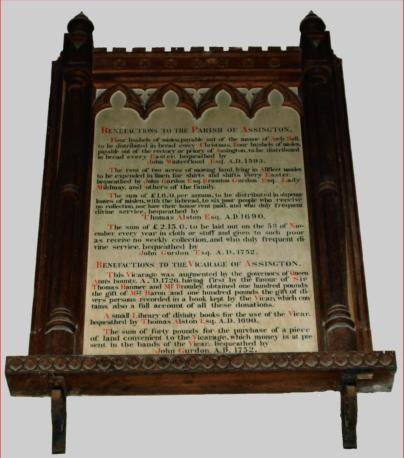 BENEFACTIONS TO THE PARISH OF ASSINGTON.
Four bushels of mislen, payable out of the manor of Aveli Hall,
to be distributed in bread every Christmas, Four bushels of mislen,
payable out of the rectory or priory of Assington, to be distributed
in bread every Easter, bequeathed by
John Winterflood Esq. A.D. 1593.
The rent of two acres of meadow land, lying in
to be expended in linen for shirts and shifts every Easter,
bequeathed by John Gurdon Esq. Brampton Gurdon Esq. Lady
Mildmay, and others of the family.
The sum of £1.6.0, per annum, to be distributed in sixpenny
loaves of mislen, with the in bread, to six poor people who receive
no collection, nor have their house rent paid, and who duly frequent
divine service, bequeathed by
Thomas Alston Esq. A.D. 1690.
The sum of £2.15.0, to be laid out on the 5th of No-
vember every year in cloth or stuff and given to such poor
as receive no weekly collection, and who duly frequent di-
vine service, bequeathed by
John Gurdon Esq. A.D. 1752.
BENEFACTIONS TO THE VICARAGE OF ASSINGTON.
This Vicarage was augmented by the governors of Queen
Anns bounty, A.D. 1726, having first by the favour of Sir
Thomas Hanmer and Mr Bromley, obtained one hundred pounds
the gift of Mrs Baron and one hundred pounds the gift of di-
vers persons recorded in a book kept by the Vicar, which con
tains also a full account of all these donations.
A small Library of divinity books for the use of the Vicar,
bequeathed by Thomas Alston Esq. A.D. 1690.
The sum of forty pounds for the purchase of a piece
of land convenient to the Vicarage, which money is at pre
sent in the hands of the Vicar, bequeathed by
John Gurdon. A.D. 1752.